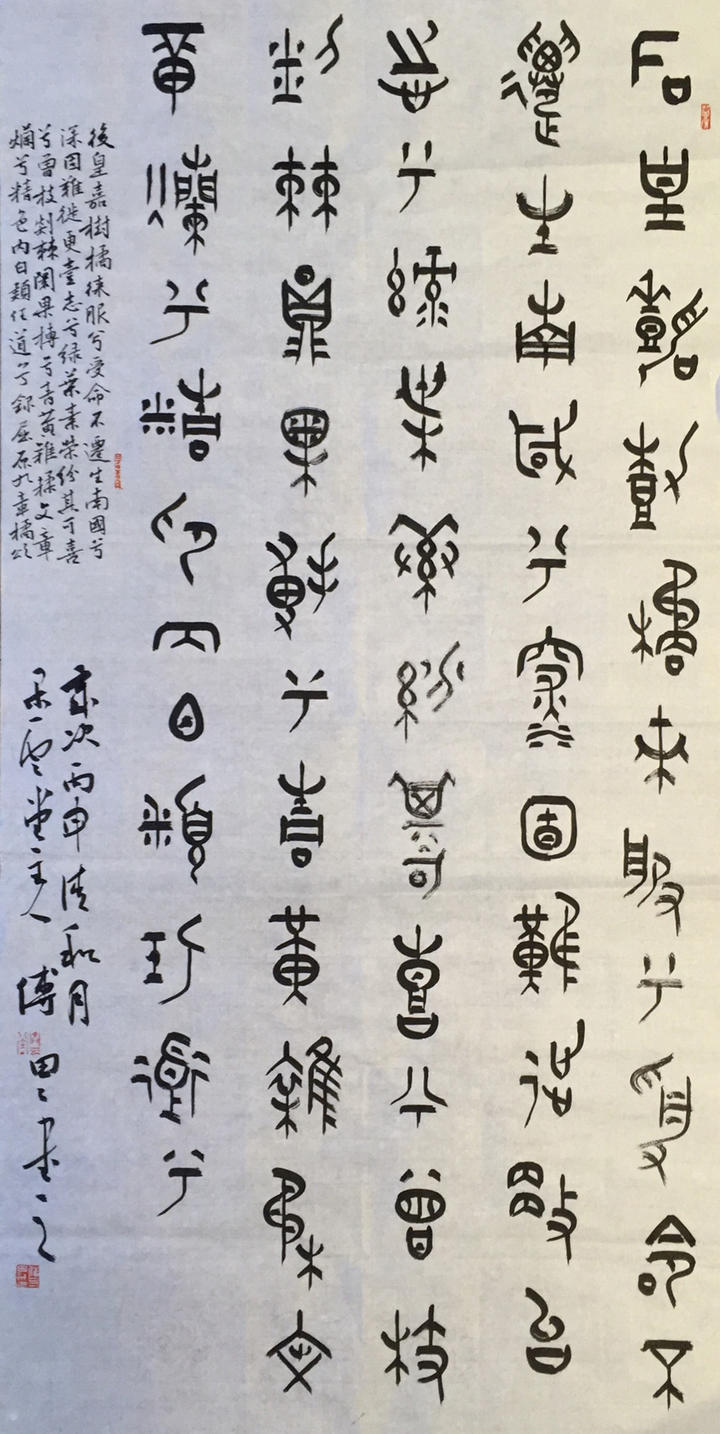 后皇嘉樹橘來服兮受命不
遷生南國兮深固難徙更壹
志兮綠葉素紛其可喜兮曾枝
剡棘圜果摶兮青黃雜糅文
章爛兮精色內白類任道兮
後皇嘉樹橘徠服兮受命不遷生南國兮
深固難徙更壹志兮綠葉素榮紛其可喜
兮曾枝剡棘圜果摶兮青黃雜揉文章
爛兮精色內白類任道兮錄屈原九章橘頌
歲次丙申清和月
雲堂主人傅田田書之